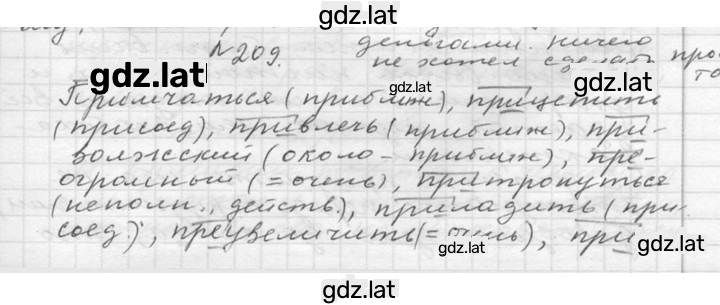 gdz.lat
N 209.
деньгами. ничего
не хотел сделать
gdz.lat
Примчаться (приближ), прицепить
gdz.lat
(присоед), привлечь (приближ), при-
волжский (около - приближ), пре-
огромный (= очень), притронуться
(неполн., действ), приладить (при-
соед), преувеличить (= очень), при
gdz.lat
gdz.lat
gdz.lat